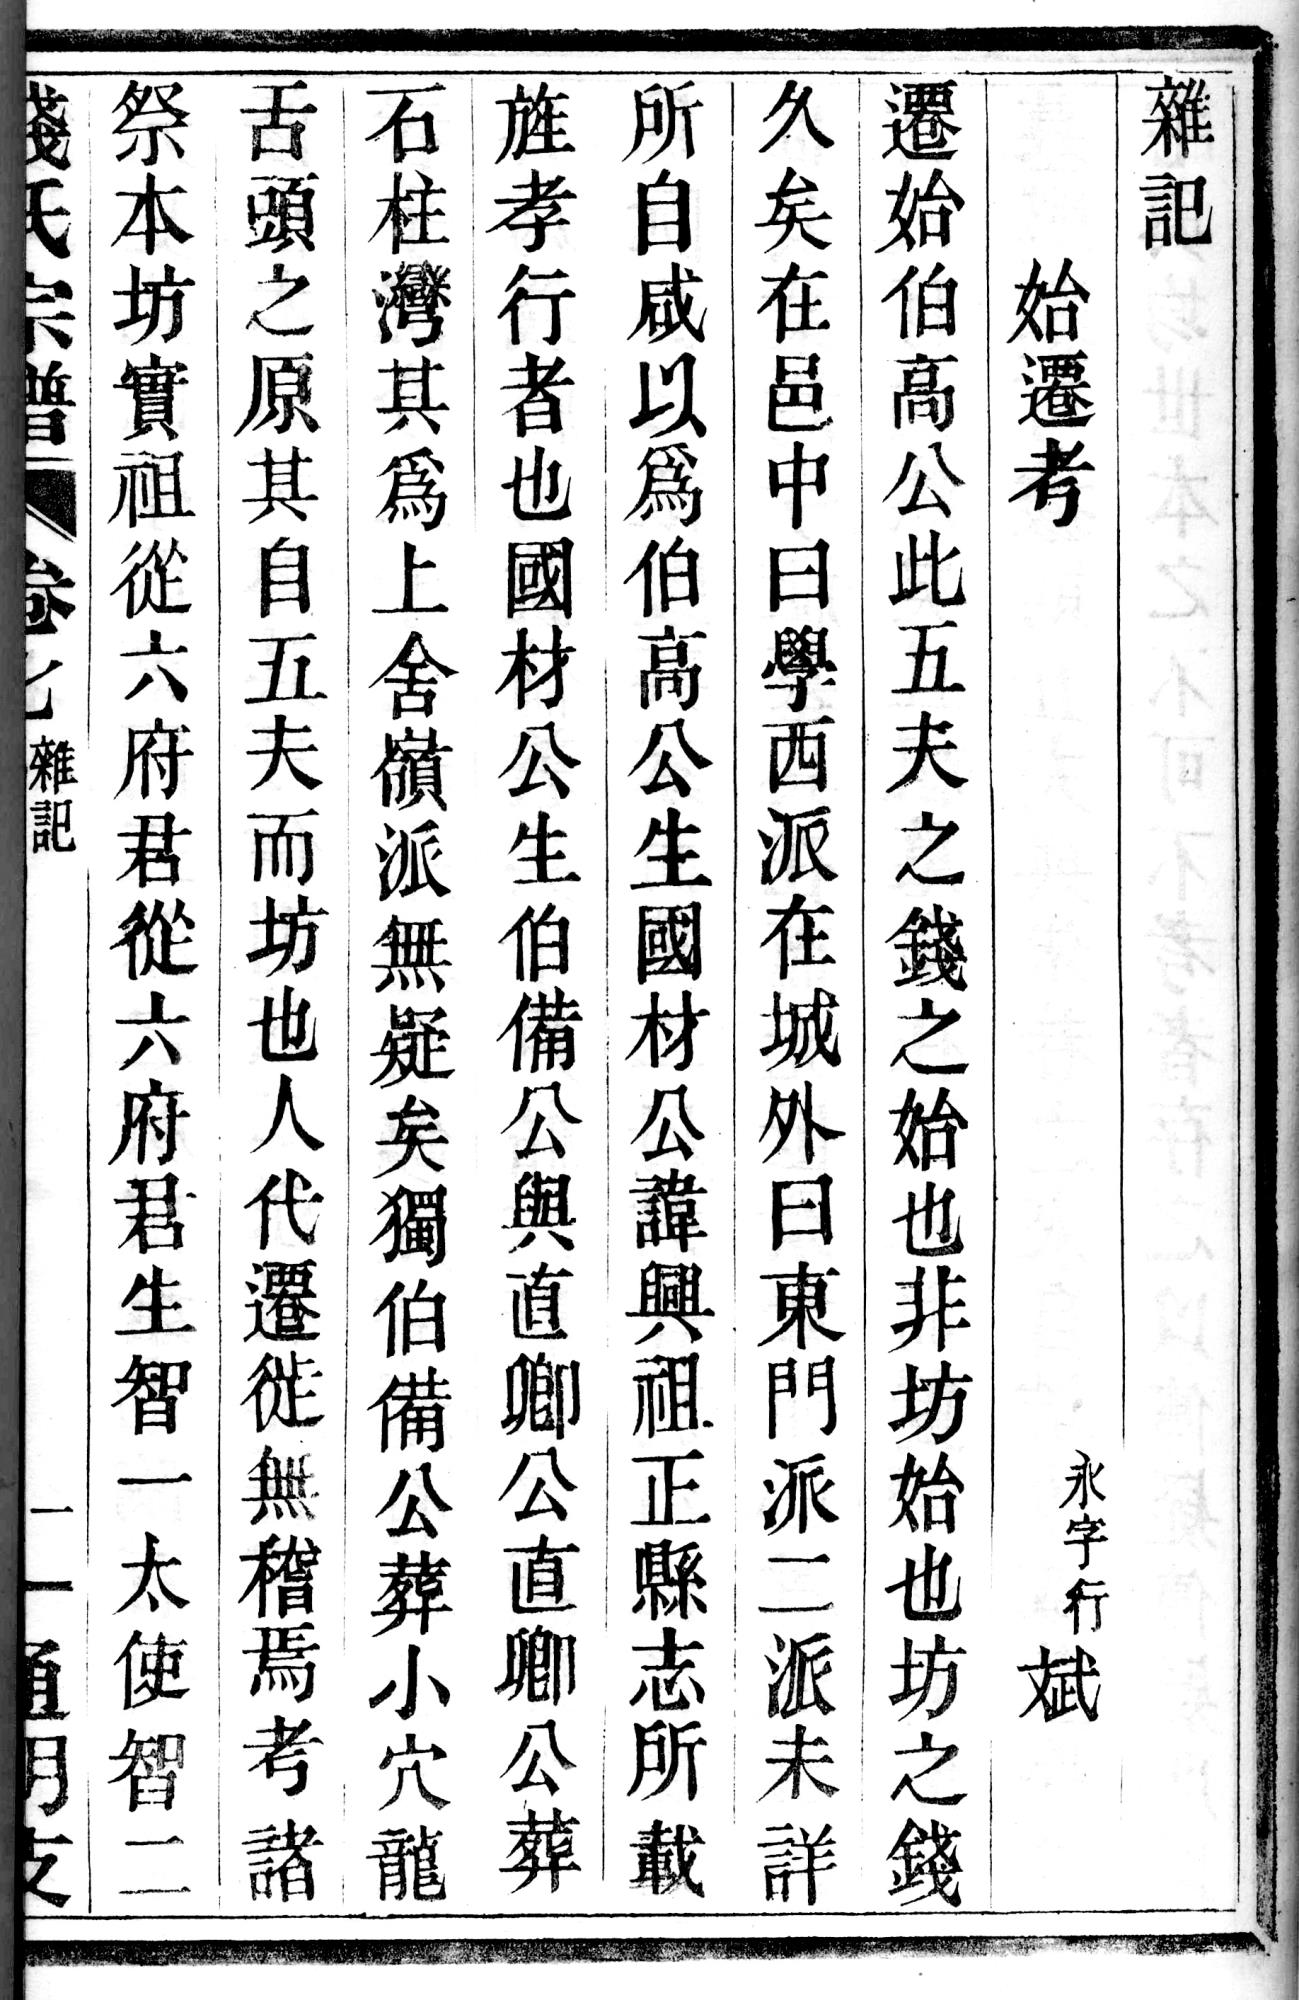 雜記
始遷考
永字行斌
遷始伯高公此五夫之錢之始也非坊始也坊之錢
久矣在邑中曰學西派在城外曰東門派二派未詳
所自咸以爲伯高公生國材公諱興祖正縣志所載
旌孝行者也國材公生伯備公與直卿公直卿公葬
石柱灣其爲上舍嶺派無疑矣獨伯備公葬小穴龍
舌頭之原其自五夫而坊也人代遷徙無稽焉考諸
祭本坊實祖從六府君從六府君生智一太使智二
錢氏宗譜
卷七
雜記
一
通明支